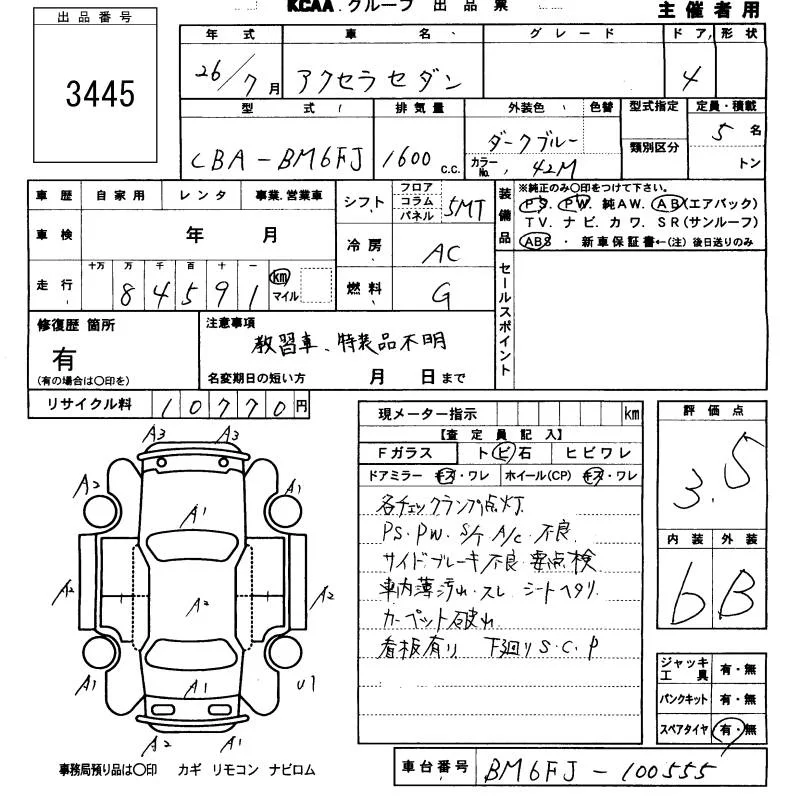 出品番号
3445
KCAA.グループ 出品票
主催者用
年式 車名 グレード ドア 形状
26/7月 アクセラセダン 4
型式 排気量 外装色 色替 型式指定 定員・積載
CBA-BM6FJ 1600 c.c. ダークブルー カラーNo. 42M 類別区分 5名 トン
車歴 自家用 レンタ 事業.営業車
シフト フロア コラム パネル 5MT
装備品
※純正のみ○印をつけて下さい。
PS. PW. 純AW. AB(エアバック)
TV. ナビ. カワ. SR(サンルーフ)
ABS ・ 新車保証書←(注) 後日送りのみ
車検 年 月
冷房 AC
走行 十万 万 千 百 十 一
84591 km マイル
燃料 G
セールスポイント
修復歴 箇所
有
(有の場合は○印を)
注意事項
教習車、特装品不明
名変期日の短い方 月 日まで
リサイクル料 10770円
現メーター指示 km
【査定員記入】
Fガラス トビ石 ヒビワレ
ドアミラー キズ・ワレ ホイール(CP) キズ・ワレ
各チェックランプ点灯
PS・PW・S/T A/C 不良
サイドブレーキ不良 要点検
車内薄汚れ・スレ シートヘタリ
カーペット破れ
看板有り 下廻りS・C・P
評価点
3.5
内装 外装
b B
ジャッキ工具 有・無
パンクキット 有・無
スペアタイヤ 有・無
A3 A3
A2 A1 A1
A2 A2 A2
A1 A1 U1
A2 A1
事務局預り品は○印 カギ リモコン ナビロム
車台番号 BM6FJ-100555